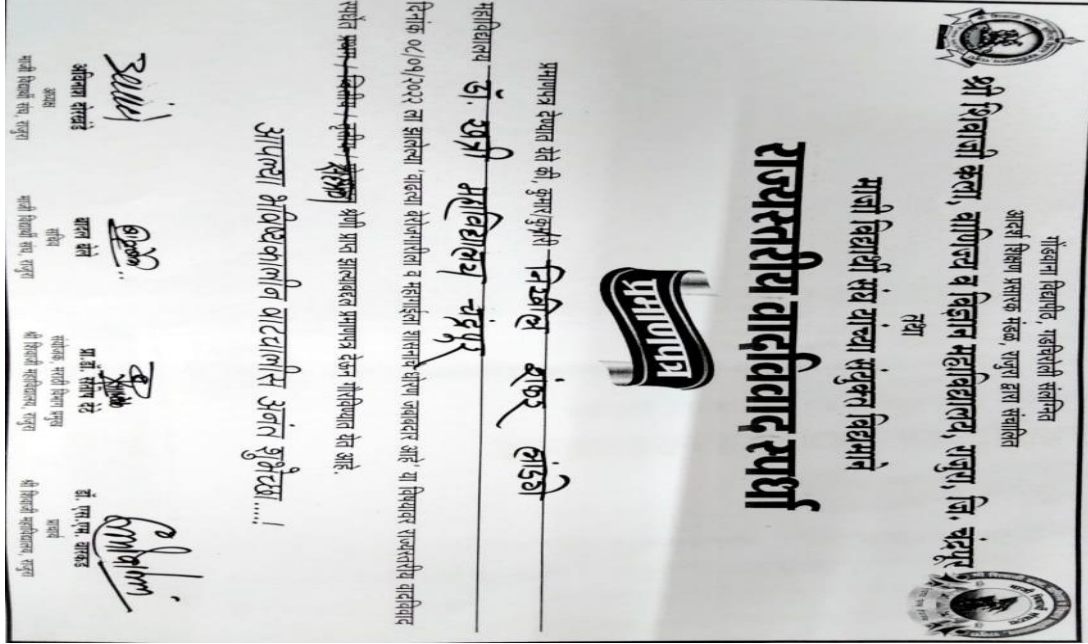 गोंडवाना विद्यापीठ, गडचिरोली संलग्नित
आदर्श शिक्षण प्रसारक मंडळ, राजुरा द्वारा संचालित
श्री शिवाजी कला, वाणिज्य व विज्ञान महाविद्यालय, राजुरा, जि. चंद्रपूर
तथा
माजी विद्यार्थी संघ यांच्या संयुक्त विद्यमाने
राज्यस्तरीय वादविवाद स्पर्धा
प्रमाणपत्र
प्रमाणपत्र देण्यात येते की, कुमार/कुमारी निखील शंकर तांडी
महाविद्यालय डॉ. खत्री महाविद्यालय चंद्रपूर
दिनांक ०८/०१/२०२२ ला झालेल्या 'वाढत्या बेरोजगारीला व महागाईला शासनाचे धोरण जबाबदार आहे' या विषयावर राज्यस्तरीय वादविवाद
स्पर्धेत प्रथम / द्वितीय / तृतीय / श्रेणी प्राप्त झाल्याबद्दल प्रमाणपत्र देऊन गौरविण्यात येत आहे.
आपल्या भविष्यकालीन वाटचालीस अनंत शुभेच्छा.....!
अविनाश दोरखंडे
अध्यक्ष
माजी विद्यार्थी संघ, राजुरा
बादल बेले
सचिव
माजी विद्यार्थी संघ, राजुरा
संयोजक, मराठी विभाग प्रमुख
श्री शिवाजी महाविद्यालय, राजुरा
डॉ. एस.एम. वारकड
प्राचार्य
श्री शिवाजी महाविद्यालय, राजुरा